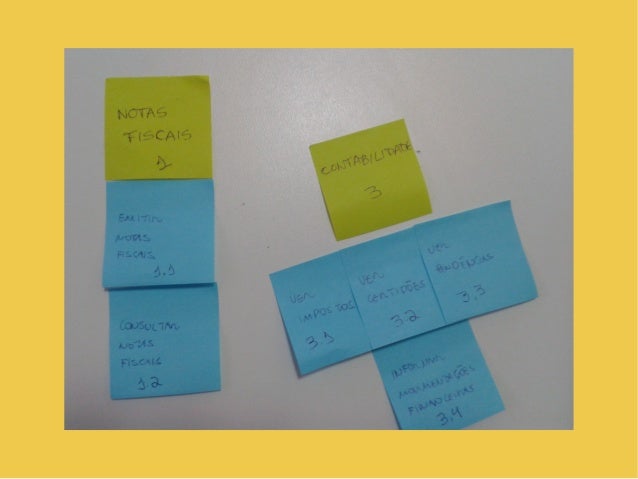 NOTAS
FISCAIS
1
EMITIR
NOTAS
FISCAIS
1.1
CONSULTAR
NOTAS
FISCAIS
1.2
CONTABILIDADE
3
VER
IMPOSTOS
3.1
VER
CERTIDÕES
3.2
VER
PENDÊNCIAS
3.3
INFORMAR
MOVIMENTAÇÕES
FINANCEIRAS
3.4